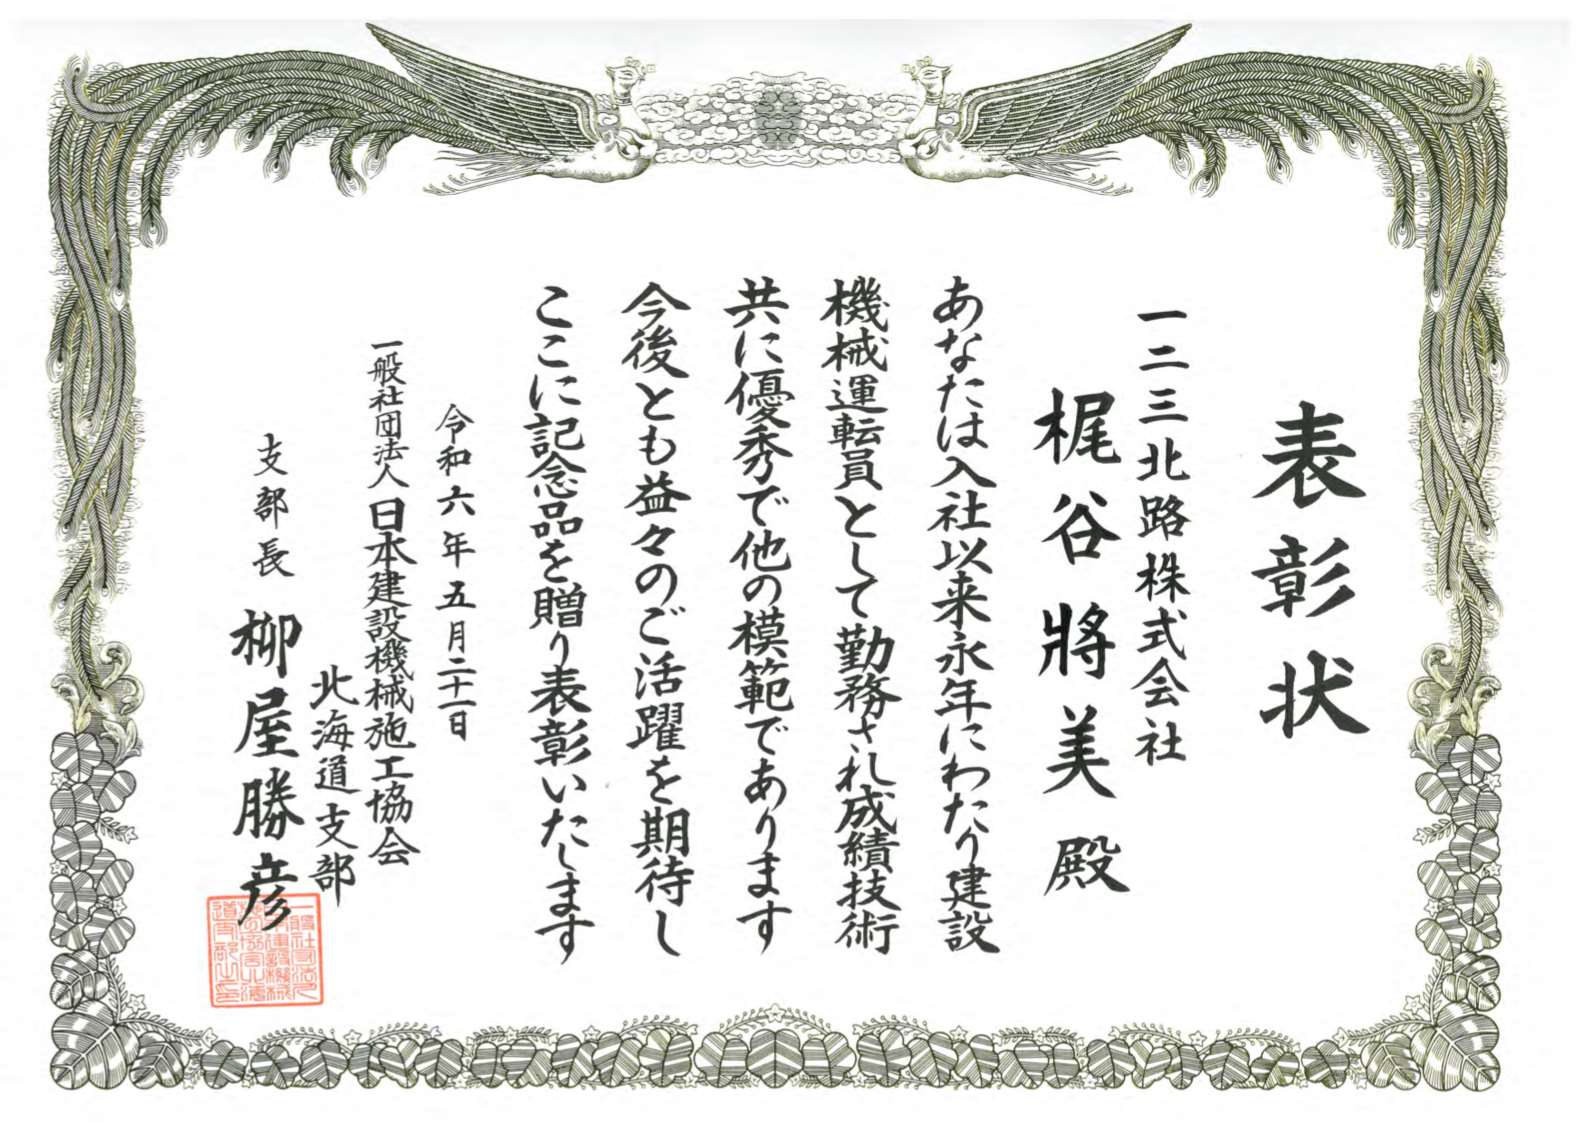 表彰状
一二三北路株式会社
梶谷將美殿
あなたは入社以来永年にわたり建設
機械運転員として勤務され成績技術
共に優秀で他の模範であります
今後とも益々のご活躍を期待し
ここに記念品を贈り表彰いたします
令和六年五月二十一日
一般社団法人日本建設機械施工協会
北海道支部
支部長 柳屋勝彦